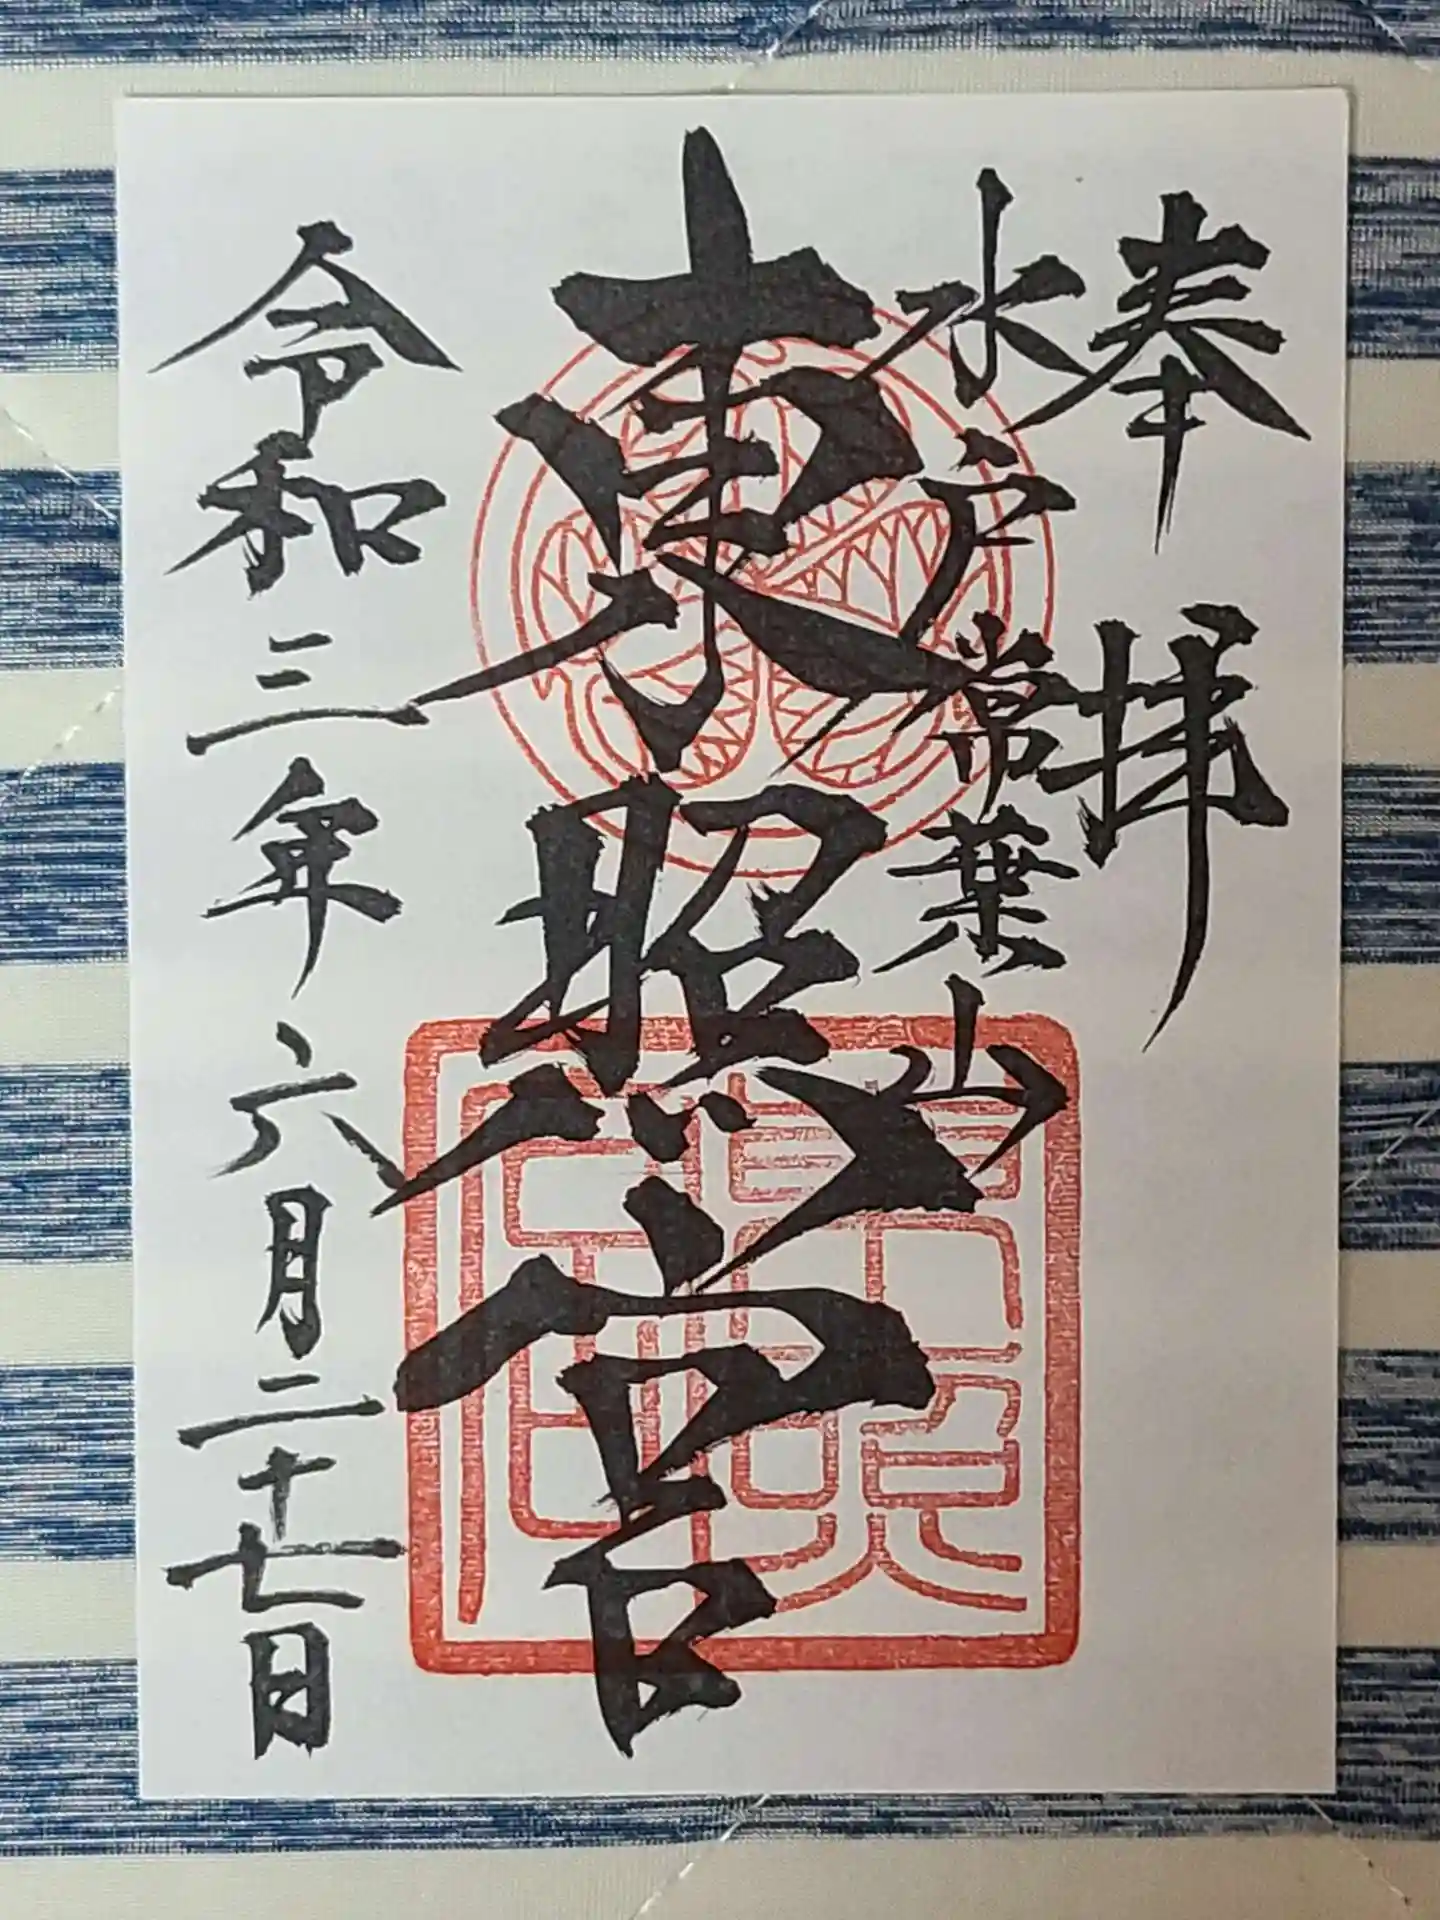 奉拝
水戸常葉山
東照宮
令和三年六月二十七日